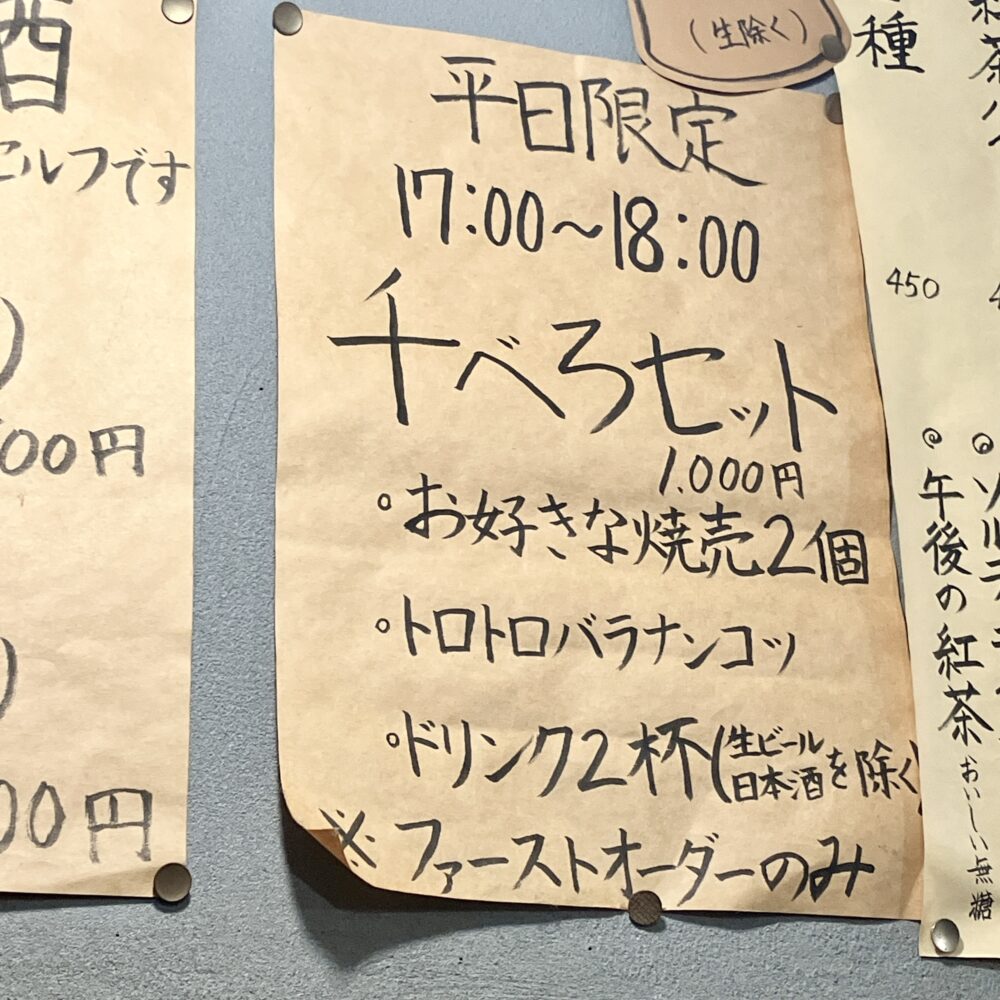 酒
セルフです
00円
00円
(生除く)
平日限定
17:00〜18:00
千べろセット
1.000円
◦お好きな焼売2個
◦トロトロバラナンコッ
◦ドリンク2杯(生ビール日本酒を除く)
※ファーストオーダーのみ
種
450
午後の紅茶 おいしい無糖